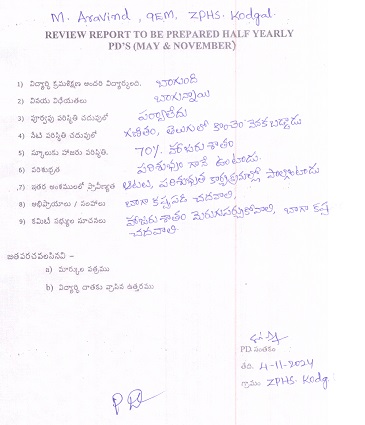 M. Aravind, 9EM, ZPHS. Kodgal.
REVIEW REPORT TO BE PREPARED HALF YEARLY
PD'S (MAY & NOVEMBER)
1) విద్యార్థి క్రమశిక్షణ అందరి విద్యార్థులది, బాగుంది
2) వినయ విధేయతలు బాగున్నాయి
3) పూర్వపు పరిస్థితి చదువులో పర్వాలేదు
4) నేటి పరిస్థితి చదువులో గణితం, తెలుగులో కొంచెం వెనకబడ్డాడు
5) స్కూలుకు హాజరు పరిస్థితి, 70% హాజరు శాతం
6) పరిశుభ్రత పరిశుభ్రం గానే ఉంటాడు.
7) ఇతర అంశములలో ప్రావీణ్యత ఆటలు, పరిశుభ్రత కార్యక్రమాల్లో పాల్గొంటాడు
8) అభిప్రాయాలు / సలహాలు బాగా కష్టపడి చదవాలి,
9) కమిటీ సభ్యుల సూచనలు హాజరు శాతం మెరుగుపర్చుకోవాలి, బాగా కష్ట
చదవాలి
జతపరచవలసినవి –
a) మార్కుల పత్రము
b) విద్యార్థి దాతకు వ్రాసిన ఉత్తరము
PD. సంతకం
తేది. 4-11-2024
గ్రామం ZPHS. Kodg.
PD